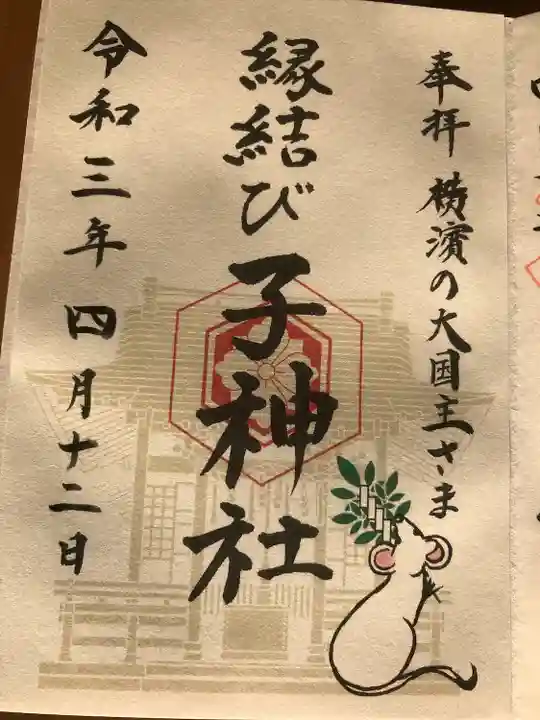 奉拝 横濱の大国主さま
縁結び子神社
令和三年四月十二日